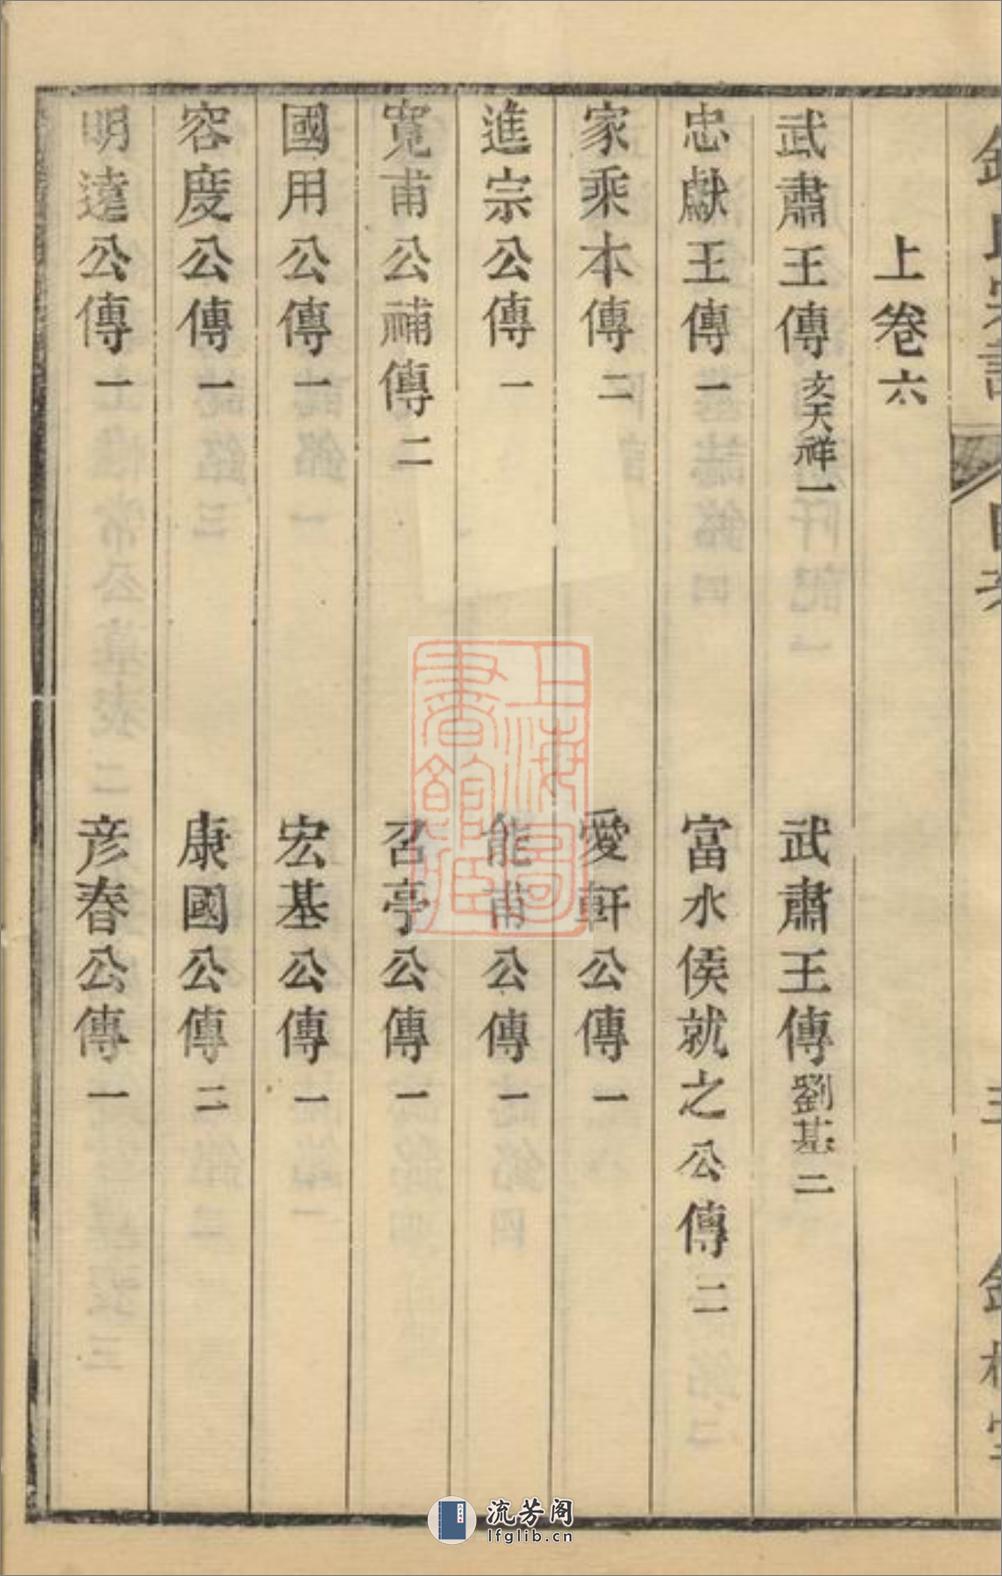 上卷六
武肅王傳文天祥一　武肅王傳劉基二
忠獻王傳一　富水侯就之公傳二
家乘本傳二　愛軒公傳一
進宗公傳一　能甫公傳一
寬甫公補傳二　召亭公傳一
國用公傳一　宏基公傳一
容度公傳一　康國公傳二
明達公傳一　彦春公傳一
上海圖書館藏
流芳阁
lfglib.cn